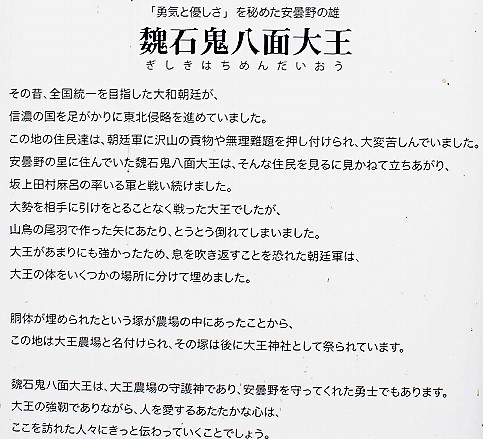 「勇気と優しさ」を秘めた安曇野の雄
魏石鬼八面大王
ぎしきはちめんだいおう
その昔、全国統一を目指した大和朝廷が、
信濃の国を足がかりに東北侵略を進めていました。
この地の住民達は、朝廷軍に沢山の貢物や無理難題を押し付けられ、大変苦しんでいました。
安曇野の里に住んでいた魏石鬼八面大王は、そんな住民を見るに見かねて立ちあがり、
坂上田村麻呂の率いる軍と戦い続けました。
大勢を相手に引けをとることなく戦った大王でしたが、
山鳥の尾羽で作った矢にあたり、とうとう倒れてしまいました。
大王があまりにも強かったため、息を吹き返すことを恐れた朝廷軍は、
大王の体をいくつかの場所に分けて埋めました。
胴体が埋められたという塚が農場の中にあったことから、
この地は大王農場と名付けられ、その塚は後に大王神社として祭られています。
魏石鬼八面大王は、大王農場の守護神であり、安曇野を守ってくれた勇士でもあります。
大王の強靭でありながら、人を愛するあたたかな心は、
ここを訪れた人々にきっと伝わっていくことでしょう。